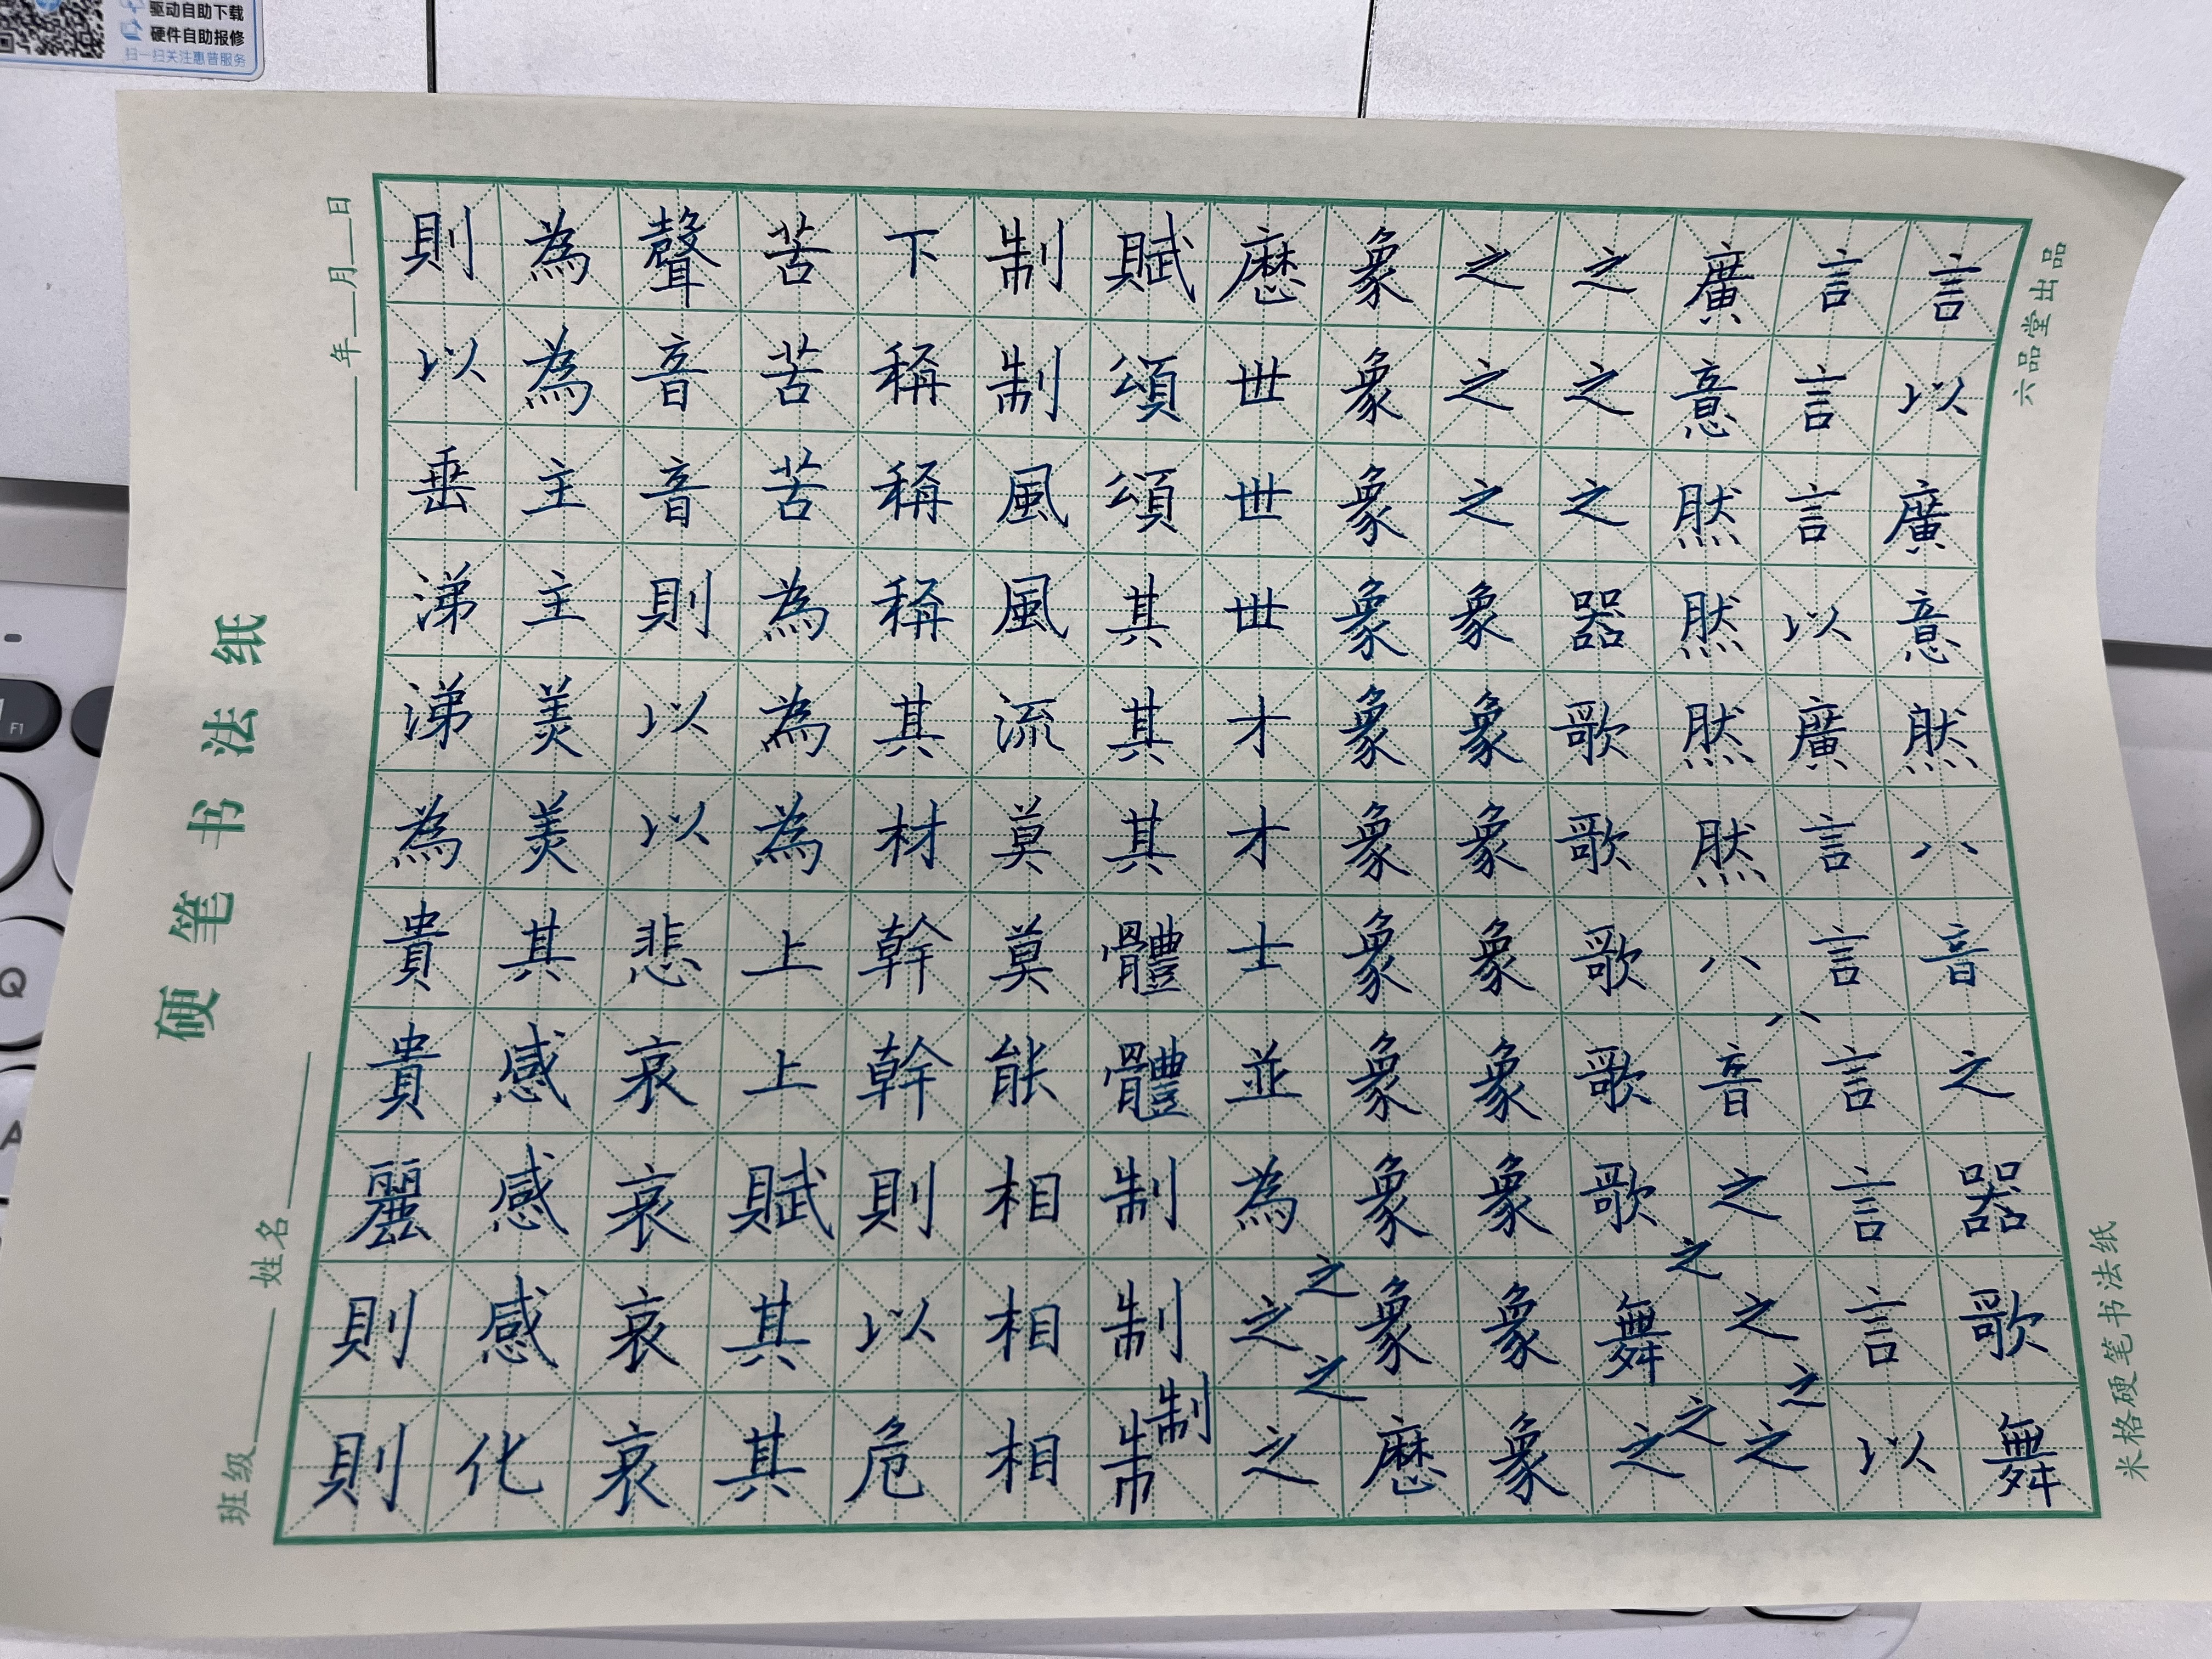 硬笔书法纸
班级 姓名
年 月 日
言以廣意然八音之器歌舞
言言言以廣言言言言言以
廣意然然然然八音之之之之之
之之之器歌歌歌歌歌舞之
之之之象象象象象象象象
象象象象象象象象象象歷
歷世世世才才士並為之之之之
賦頌頌其其其體體制制制
制制風風流莫莫能相相相
下稱稱稱其材幹幹則以危
苦苦苦為為為上上賦其其
聲音音則以以悲哀哀哀哀
為為主主美美其感感感化
則以垂涕涕為貴貴麗則則
米格硬笔书法纸
六品堂出品
驱动自助下载
硬件自助报修
扫一扫关注惠普服务
A
Q
F1